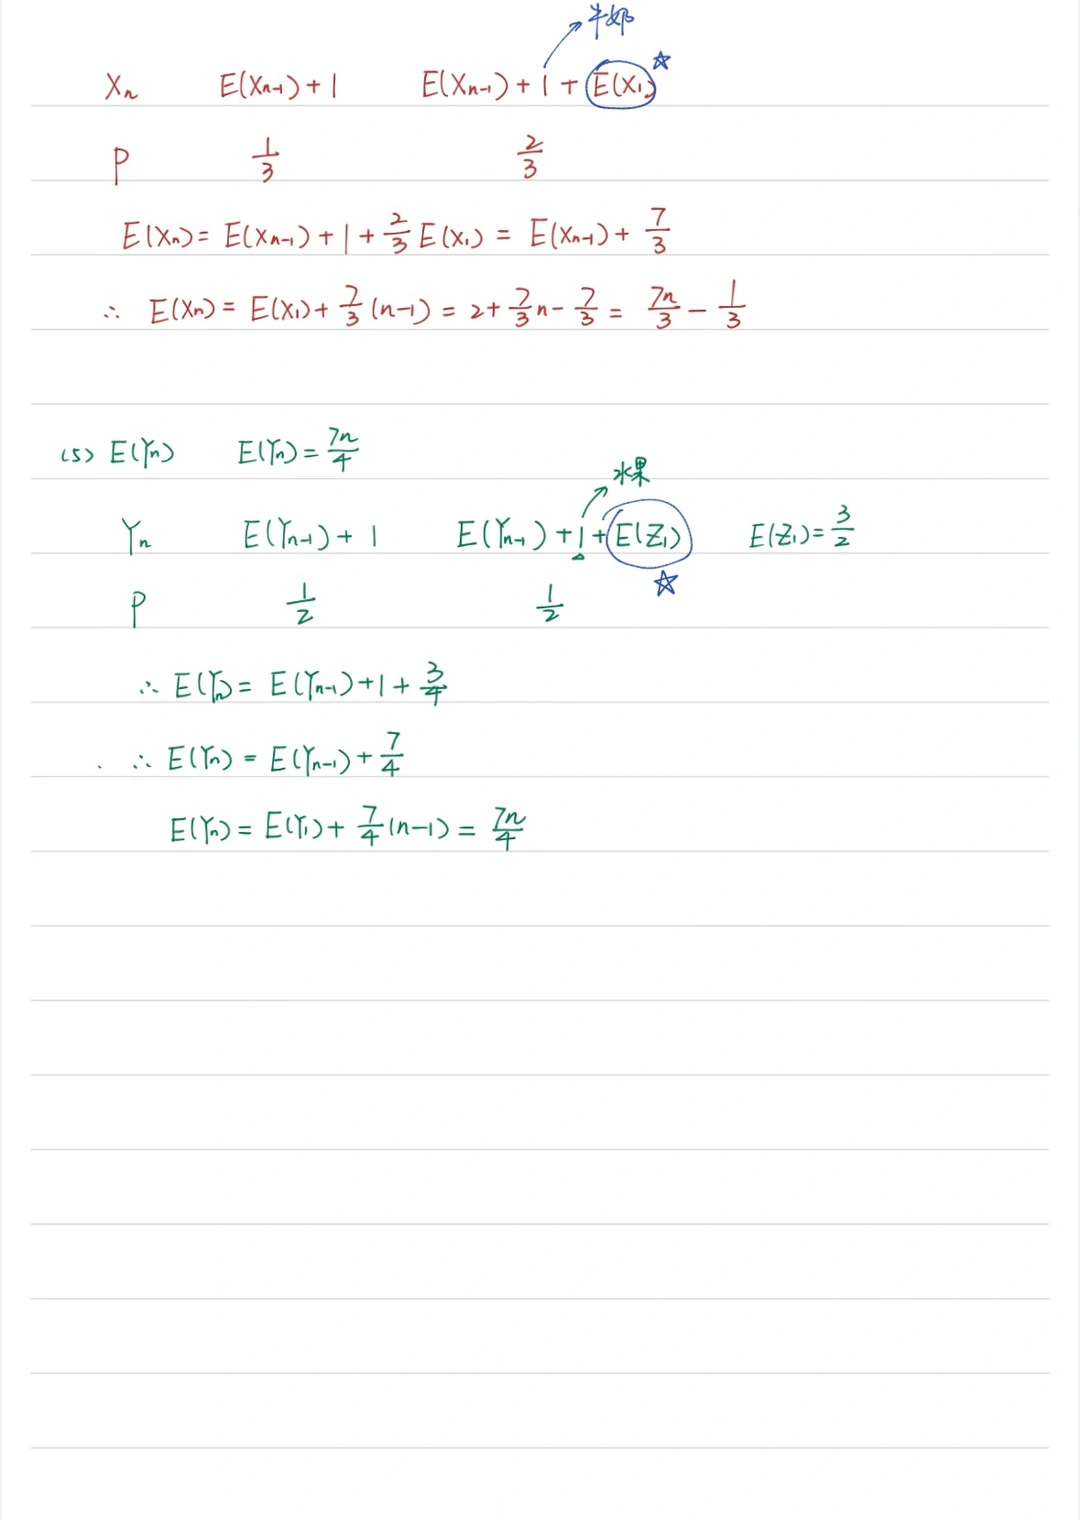 牛奶
Xn E(Xn-1)+1 E(Xn-1)+1+E(X1) ☆
P 1/3 2/3
E(Xn)=E(Xn-1)+1+2/3E(X1)=E(Xn-1)+7/3
∴ E(Xn)=E(X1)+7/3(n-1)=2+7/3n-7/3=7n/3-1/3
(5) E(Yn) E(Yn)=7n/4
水果
Yn E(Yn-1)+1 E(Yn-1)+1+E(Z1) E(Z1)=3/2
P 1/2 1/2 ☆
∴ E(Yn)=E(Yn-1)+1+3/4
∴ E(Yn)=E(Yn-1)+7/4
E(Yn)=E(Y1)+7/4(n-1)=7n/4